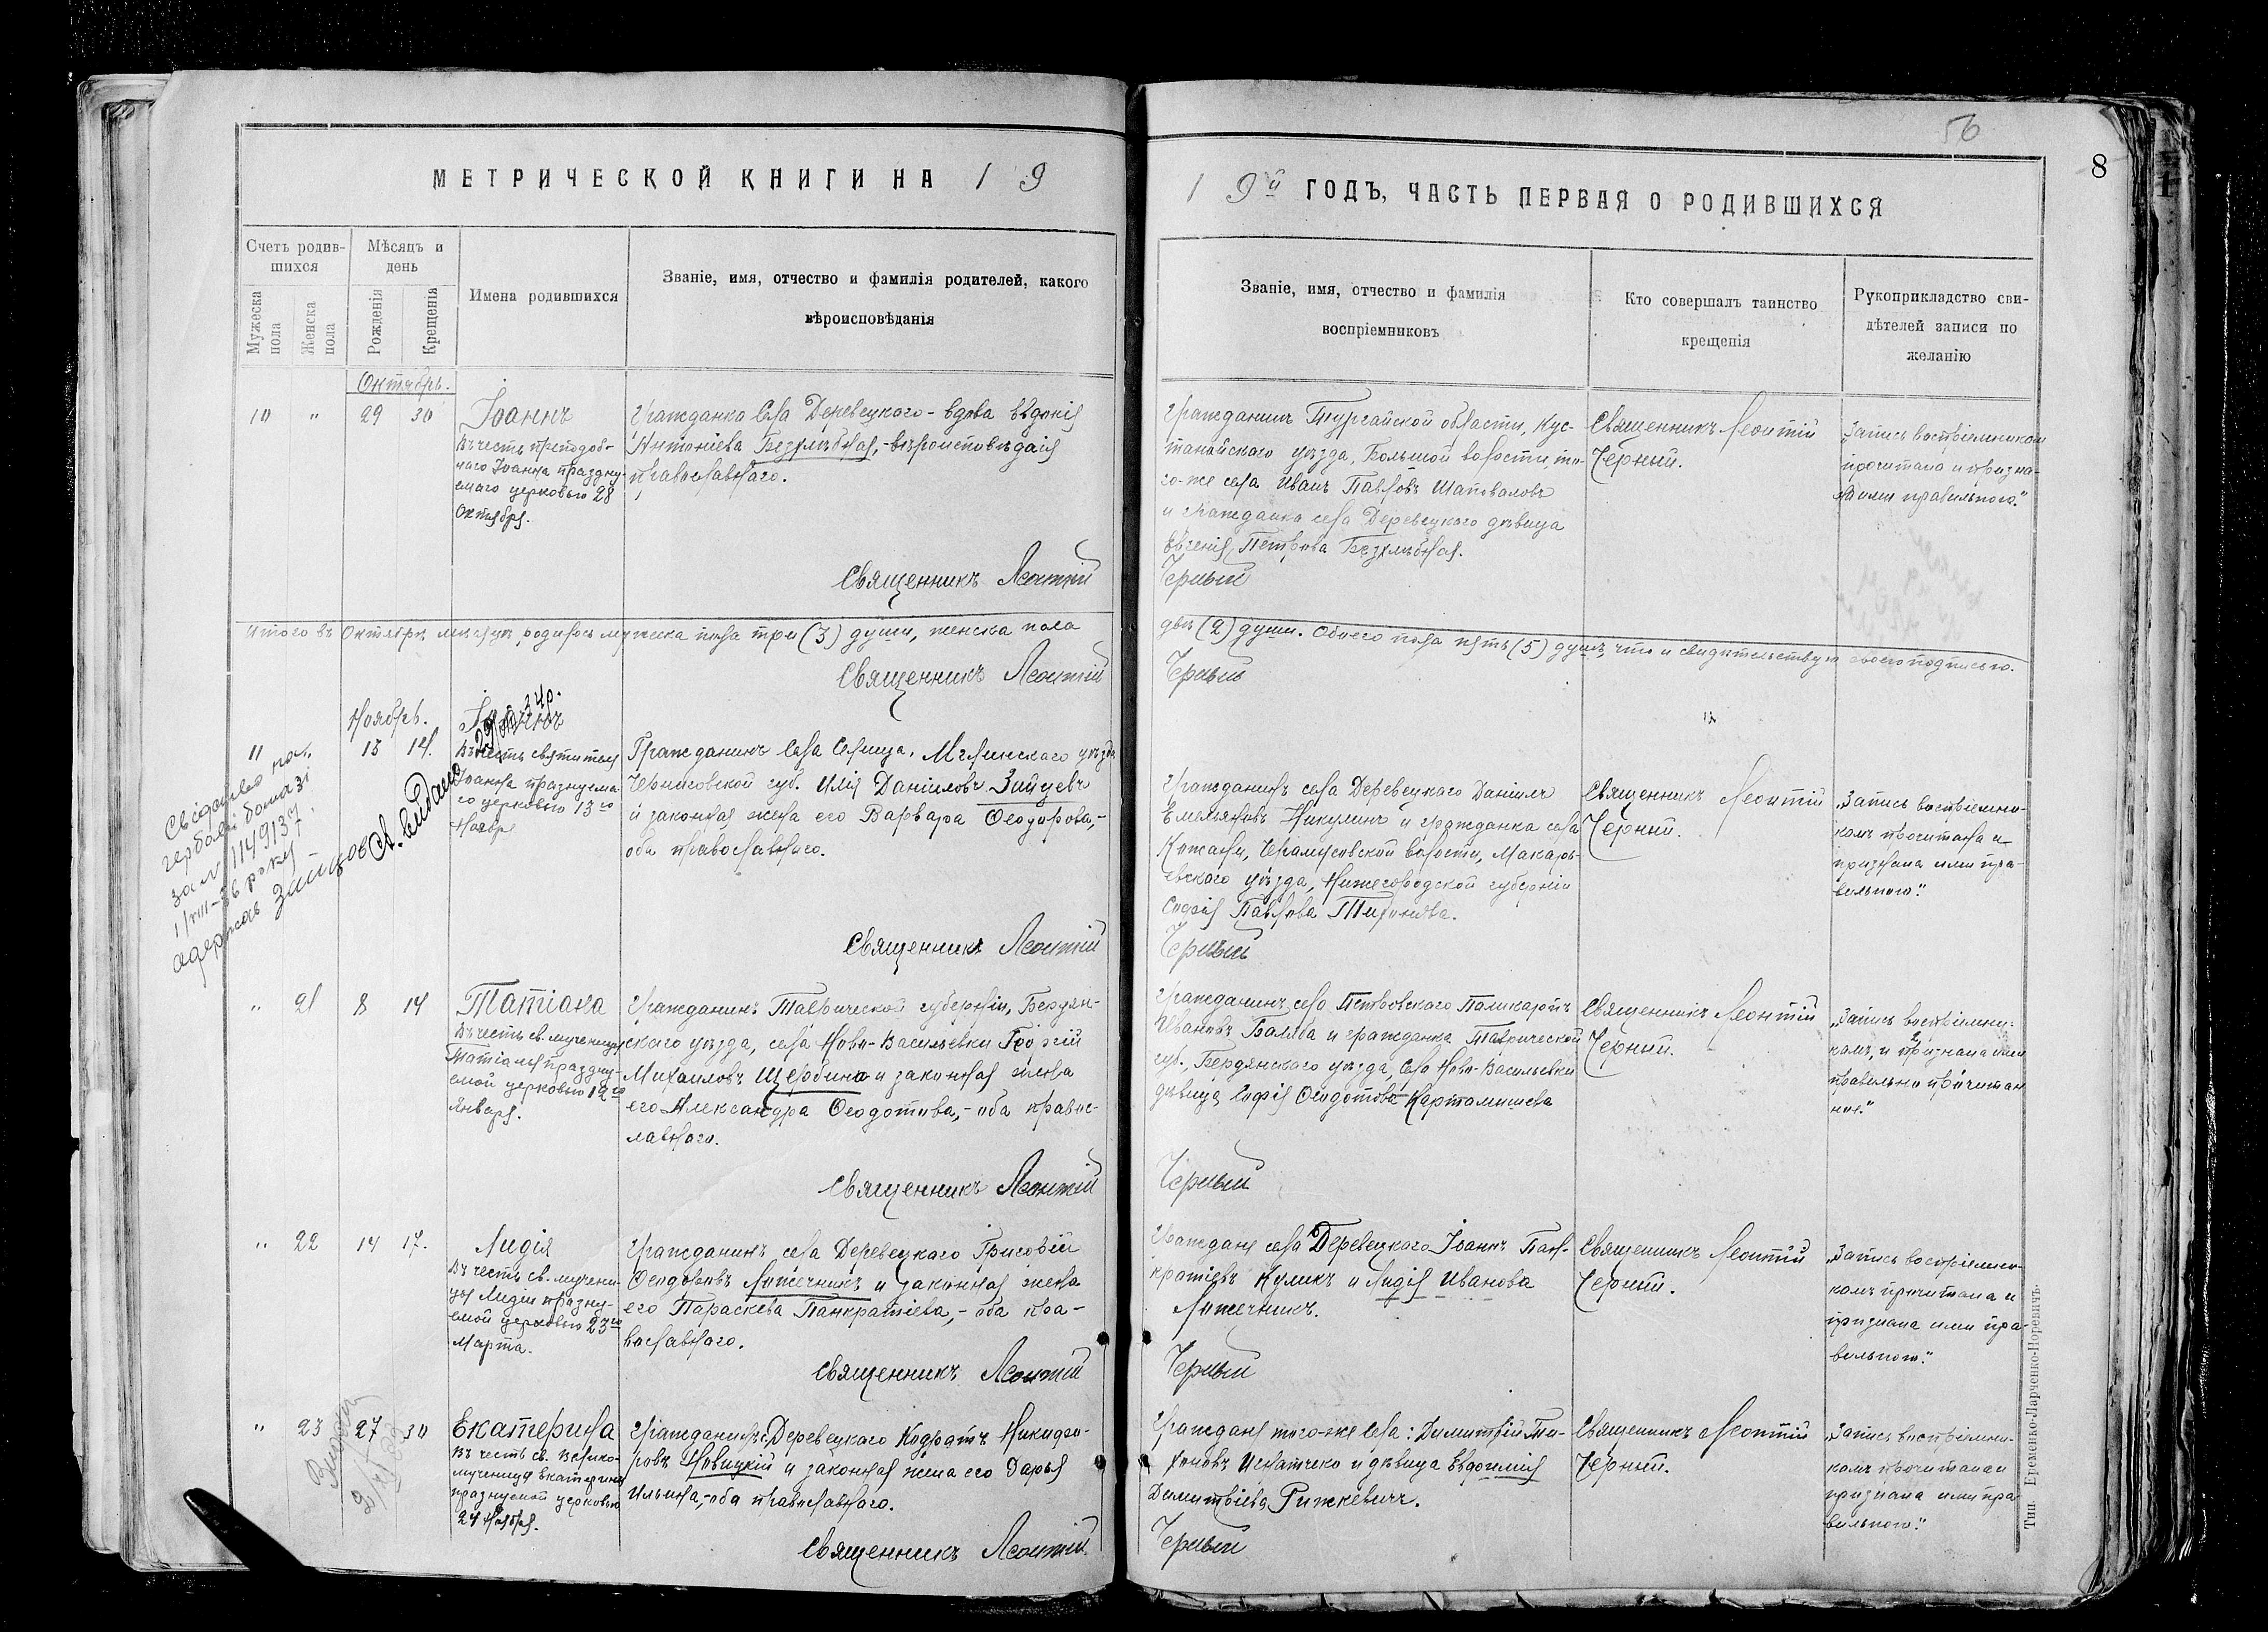 56
8
МЕТРИЧЕСКОЙ КНИГИ НА 19
19й ГОДЪ, ЧАСТЬ ПЕРВАЯ О РОДИВШИХСЯ
Счетъ родив-
шихся
Мужеска пола
Женска пола
Мѣсяцъ и
день
Рожденія
Крещенія
Имена родившихся
Званіе, имя, отчество и фамилія родителей, какого
вѣроисповѣданія
Званіе, имя, отчество и фамилія
воспріемниковъ
Кто совершалъ таинство
крещенія
Рукоприкладство сви-
дѣтелей записи по
желанію
Октябрь.
10 " 29 30
Іоаннъ
Въ честь преподоб-
наго Іоанна праздну-
емаго церковью 28
Октября.
Гражданка села Деревецкаго - вдова Евдокія
Антоніева Безхлѣбная, - вѣроисповѣданія
православнаго.
Священникъ Леонтій
Гражданинъ Тургайской области, Кус-
танайскаго уѣзда, Большой волости, то-
го-же села Иванъ Павловъ Шаповаловъ
и гражданка села Деревецкаго дѣвица
Евгенія Петрова Безхлѣбная.
Черный
Священникъ Леонтій
Черный.
"Запись воспріемникомъ
прочитана и призна-
на ими правильною."
Итого въ Октябрѣ мѣсяцѣ родилось мужска пола три (3) души, женска пола
двѣ (2) души. Обоего пола пять (5) душъ, что и свидѣтельствую своею подписью.
Священникъ Леонтій
Черный
Ноябрь.
11 13 14.
Іоаннъ
Въ честь святителя
Іоанна празднуема
го церковью 13го
Ноября
Гражданинъ села Селища, Мглинскаго уѣзда
Черниговской губ. Илія Даніиловъ Зайцевъ
и законная жена его Варвара Ѳеодорова, -
оба православнаго.
Священникъ Леонтій
Гражданинъ села Деревецкаго Даніилъ
Емельяновъ Никулинъ и гражданка села
волости, Макарь-
евскаго уѣзда, Нижегородской губерніи
Софія Павлова Тихонова.
Черный
Священникъ Леонтій
Черный.
"Запись воспріемни-
комъ прочитана и
признана ими пра-
вильною."
гербовій бомазі
за № 1149137
одержав Зайцов
" 21 8 14
Татіана
Въ честь св. мученицы
Татіаны праздну-
емой церковью 12го
Января.
Гражданинъ Таврической губерніи, Бердян-
скаго уѣзда, села Ново-Васильевки Георгій
Михаиловъ Щербина и законная жена
его Александра Ѳеодотова, - оба правос-
лавнаго.
Священникъ Леонтій
Гражданинъ села Петровскаго Поликарпъ
Ивановъ Балаба и гражданка Таврической
губ., Бердянскаго уѣзда, села Ново-Васильевки
дѣвица Софія Ѳеодотова Картамышева
Черный
Священникъ Леонтій
Черный.
"Запись воспріемни-
комъ, и признана ими
правильно прочитан
ною."
" 22 14 17.
Лидія
Въ честь св. мучени-
цы Лидіи праздну-
емой церковью 23го
Марта.
Гражданинъ села Деревецкаго Григорій
Ѳеодоровъ Ложечникъ и законная жена
его Параскева Панкратіева, - оба пра-
вославнаго.
Священникъ Леонтій
Граждане села Деревецкаго Іоаннъ Пан-
кратіевъ Куликъ и Лидія Иванова
Ложечникъ.
Черный
Священникъ Леонтій
Черный.
"Запись воспріемни-
комъ прочитана и
признана ими пра-
вильною."
" 23 27 30
Екатерина
Въ честь св. Велико-
мученицы Екатерины
празднуемой церковью
24 Ноября.
Гражданинъ с. Деревецкаго Кодратъ Никифо-
ровъ Новицкій и законная жена его Дарья
Ильина, - оба православнаго.
Священникъ Леонтій
Граждане того-же села: Димитрій Ти-
хоновъ Игнатченко и дѣвица Евфимія
Димитріева Рижкевичъ.
Черный
Священникъ Леонтій
Черный.
"Запись воспріемни-
комъ прочитана и
признана ими пра-
вильною."
Тип. Еременко-Ларченко-Норевичъ.